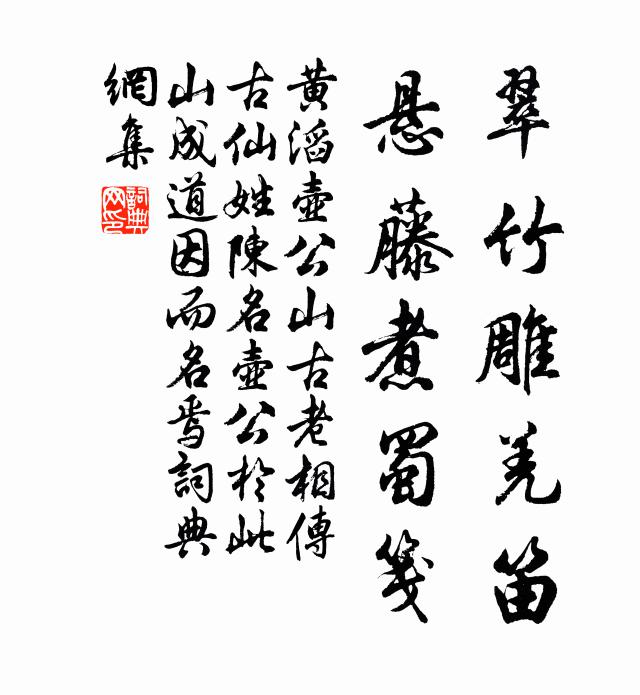 翠竹雕羌笛
悬藤煮蜀笺
黄滔壺公山古老相傳
古仙姓陳名壺公於此
山成道因而名焉詞典
網集
詞典
网印